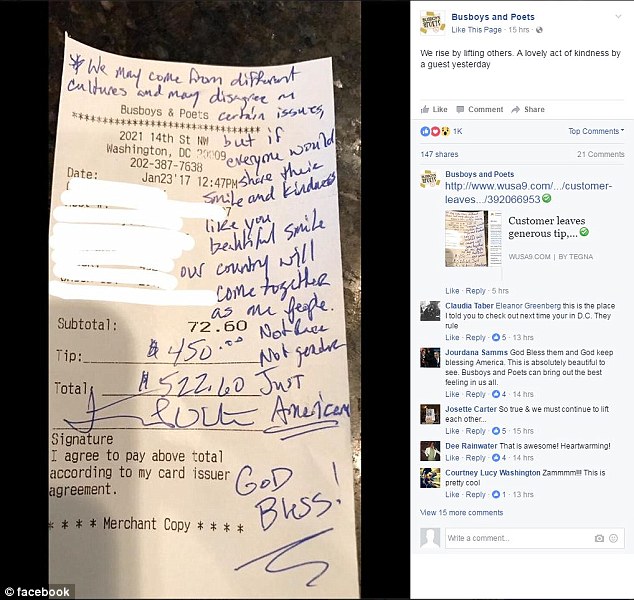 * We may come from different
cultures and may disagree on
Busboys & Poets certain issues,
****************************
2021 14th St NW but if
Washington, DC 20009 everyone would
202-387-7638
Date: Jan23'17 12:47PM share their
smile and kindness
like you
beautiful smile
our country will
come together
as one people.
Subtotal: 72.60 Not race
Tip: $ 450.00 Not gender
Total: $ 522.60 Just
American
Signature
I agree to pay above total
according to my card issuer
agreement.
GOD
Bless!
* * * * Merchant Copy * * * *
facebook
Busboys and Poets
Like This Page · 15 hrs ·
We rise by lifting others. A lovely act of kindness by
a guest yesterday
Like Comment Share
1K Top Comments
147 shares 21 Comments
Busboys and Poets
http://www.wusa9.com/.../customer-
leaves.../392066953
Customer leaves
generous tip,...
WUSA9.COM | BY TEGNA
Like · Reply · 5 hrs
Claudia Taber Eleanor Greenberg this is the place
I told you to check out next time your in D.C. They
rule
Like · Reply · 5 · 13 hrs
Jourdana Samms God Bless them and God keep
blessing America. This is absolutely beautiful to
see. Busboys and Poets can bring out the best
feeling in us all.
Like · Reply · 4 · 14 hrs
Josette Carter So true & we must continue to lift
each other...
Like · Reply · 5 · 15 hrs
Dee Rainwater That is awesome! Heartwarming!
Like · Reply · 4 · 14 hrs
Courtney Lucy Washington Zammmm!!! This is
pretty cool
Like · Reply · 1 · 13 hrs
View 15 more comments
Write a comment...